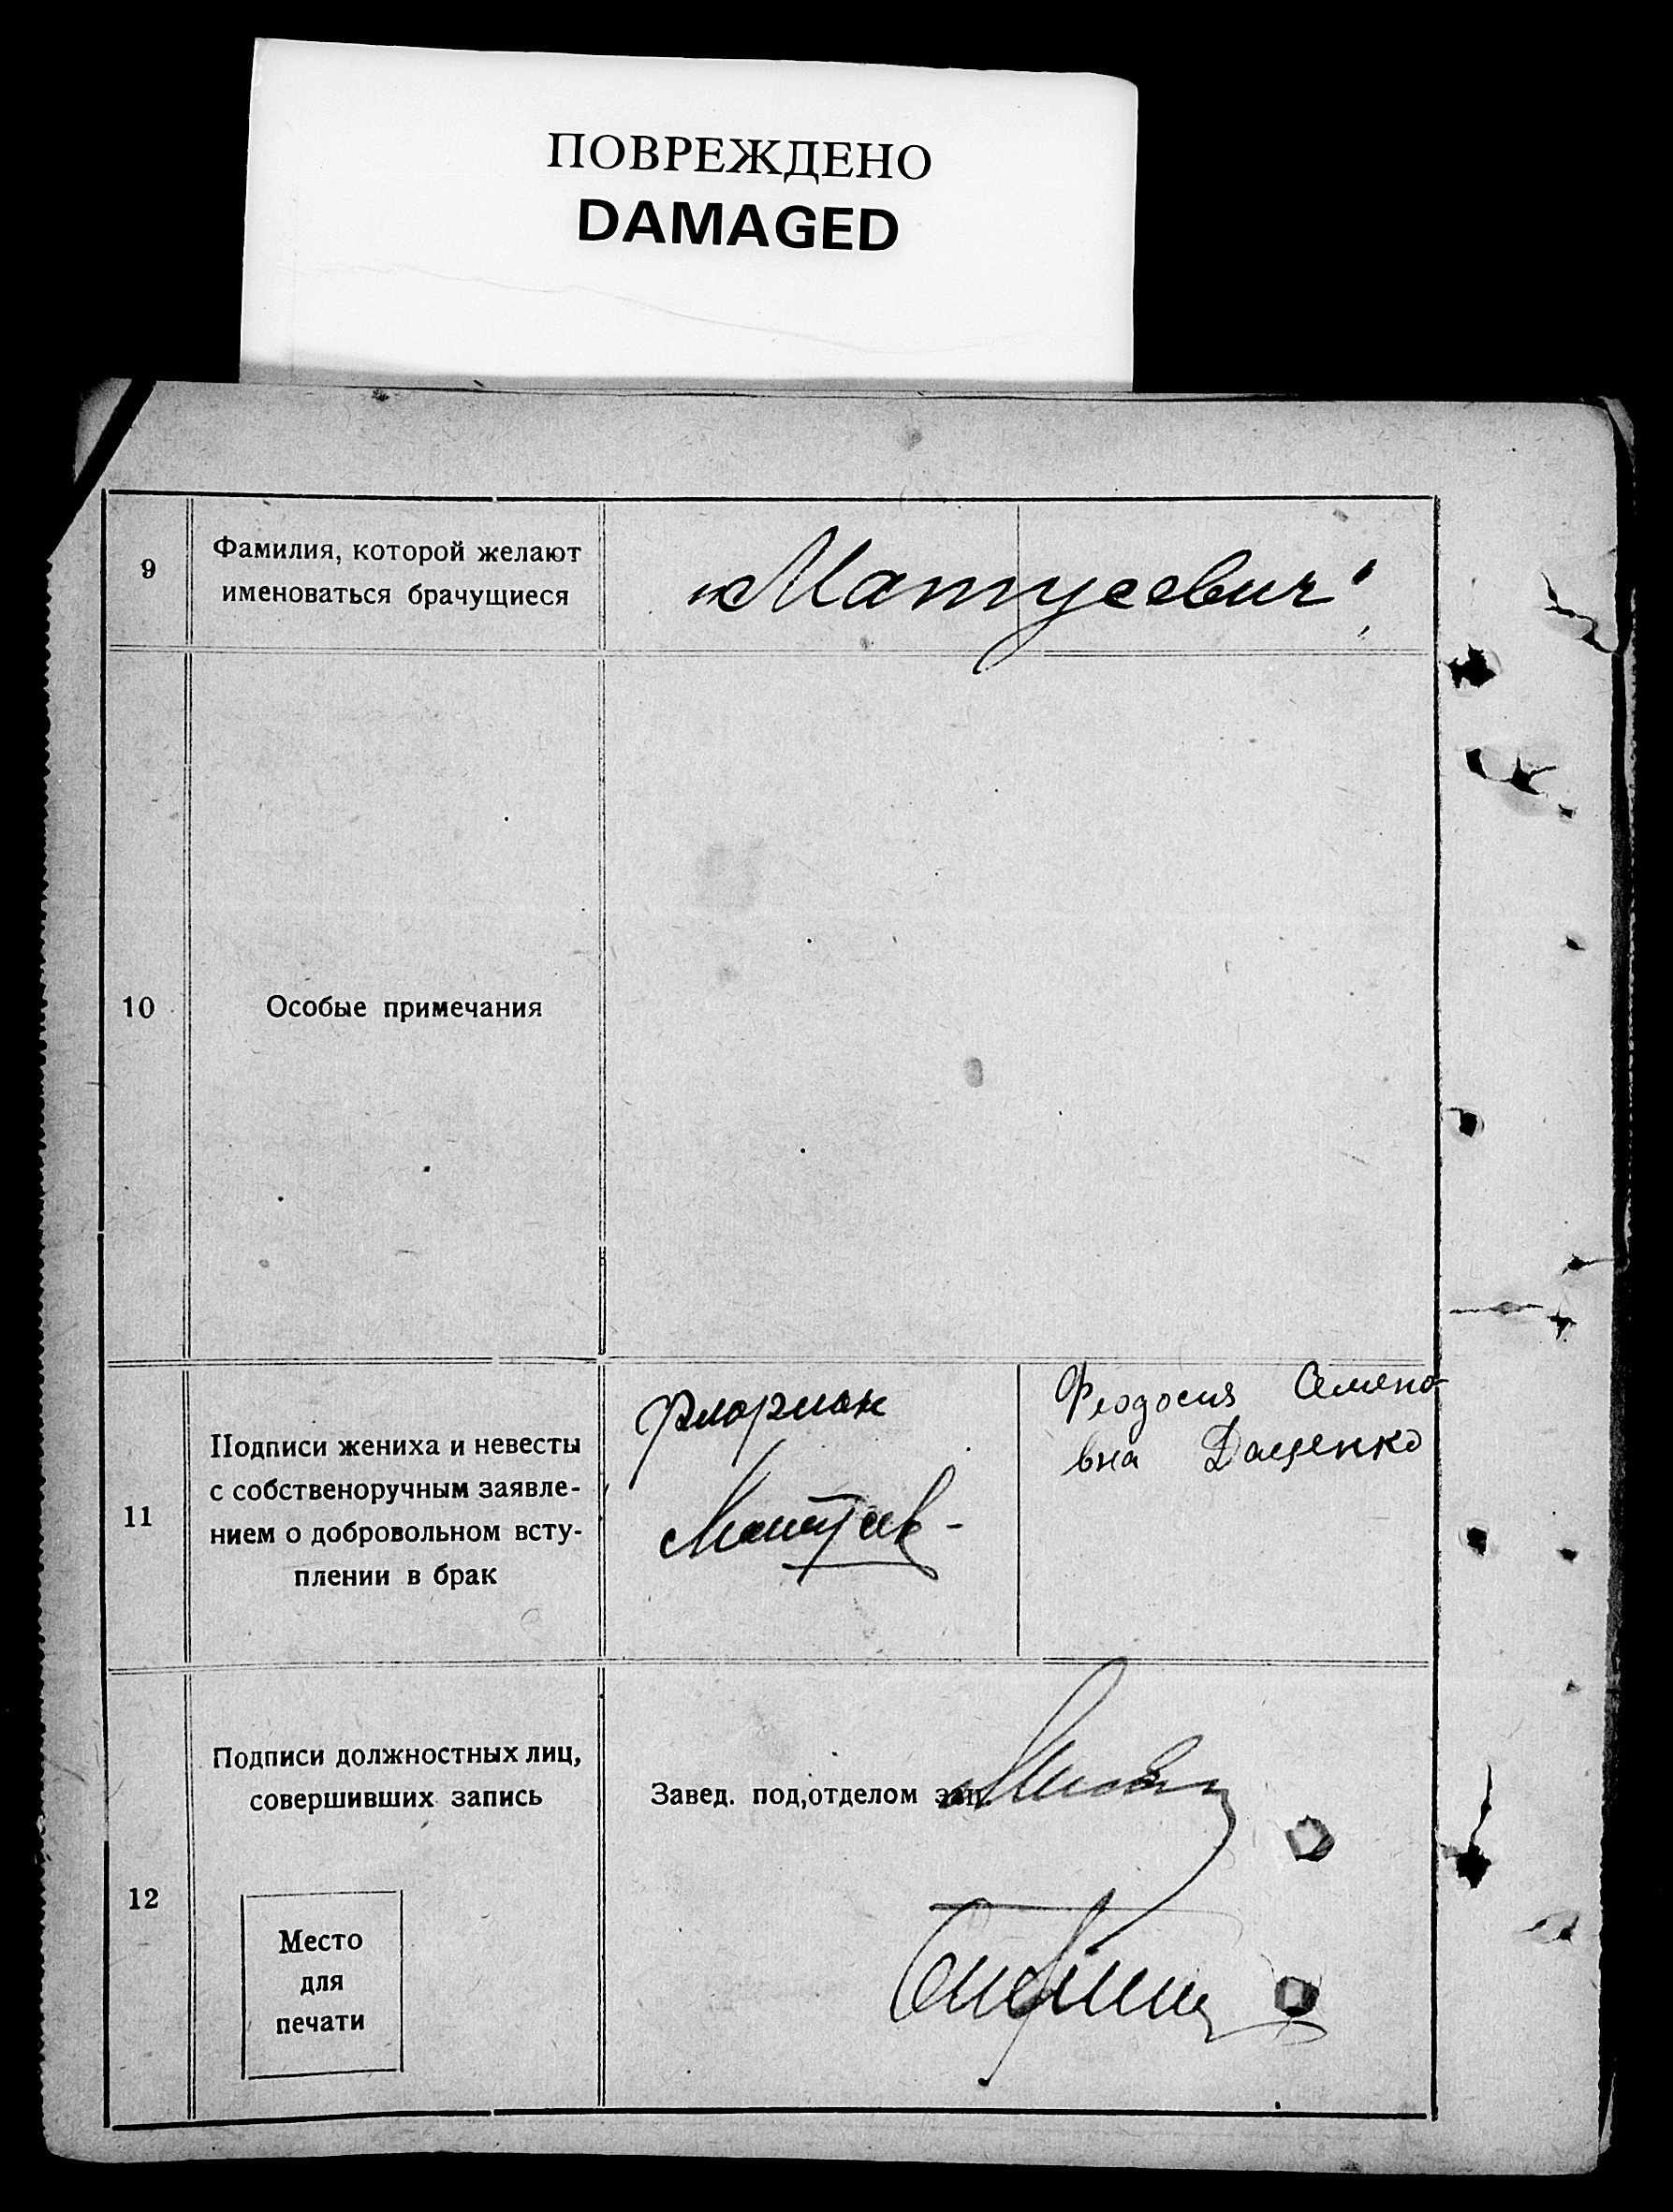 ПОВРЕЖДЕНО
DAMAGED
9
Фамилия, которой желают
именоваться брачущиеся
„Матусевич“
10
Особые примечания
11
Подписи жениха и невесты
с собственоручным заявле-
нием о добровольном всту-
плении в брак
Флориан
Матусев-
Феодосия Семено-
вна Даценко
12
Подписи должностных лиц,
совершивших запись
Завед. под,отделом зап.
Место
для
печати